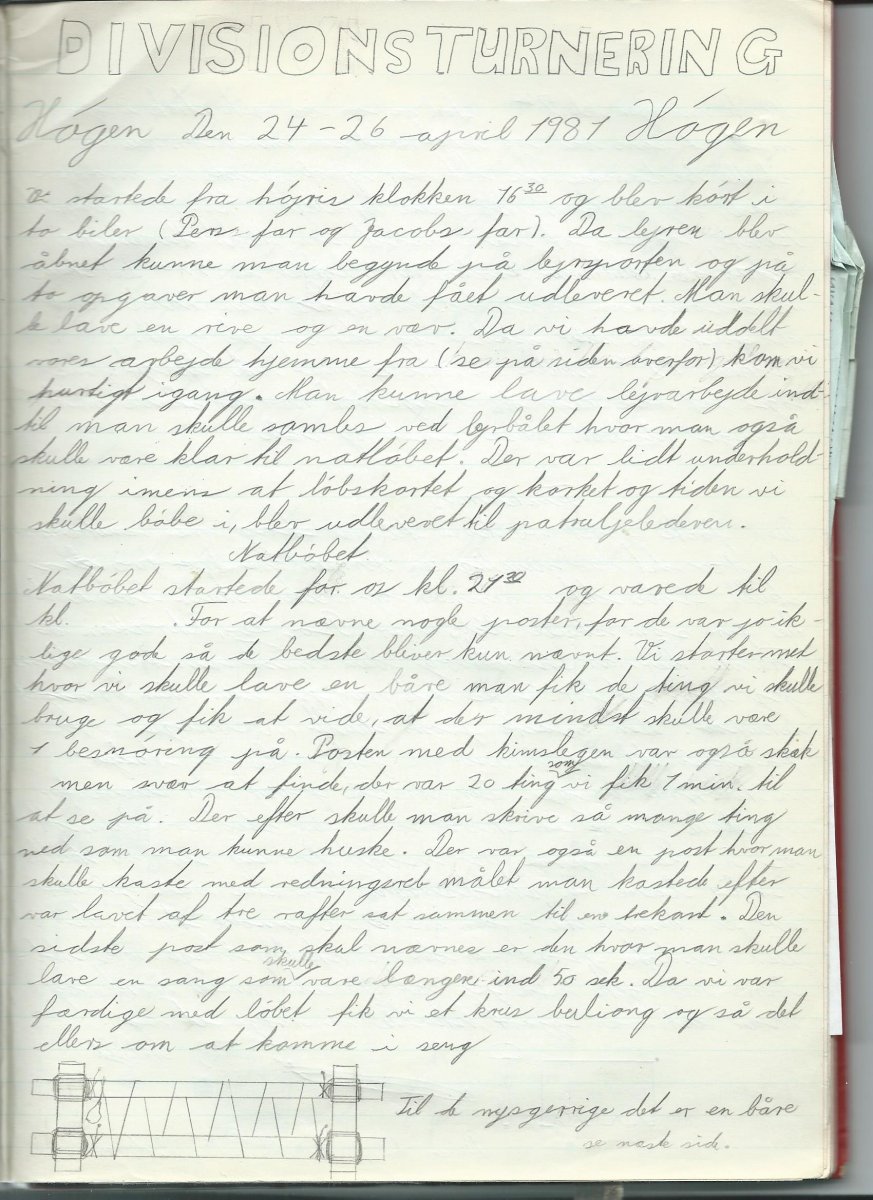 DIVISIONSTURNERING
Högen Den 24-26 april 1981 Högen
startede fra höjris klokken 16 30 og blev kört i
to biler (Pers far og Jacobs far). Da lejren blev
åbnet kunne man begynde på lejrporten og på
to opgaver man havde fået udleveret. Man skul-
le lave en rive og en væv. Da vi havde uddelt
vores arbejde hjemme fra (se på siden overfor) kom vi
hurtigt igang. Man kunne lave lejrarbejde ind-
til man skulle samles ved lejrbålet hvor man også
skulle være klar til natlöbet. Der var lidt underhold-
ning imens at löbskortet og korket og tiden vi
skulle löbe i, blev udleveret til patruljelederen.
Natlöbet
Natlöbet startede for os kl. 21 30 og varede til
kl. . For at nævne nogle poster, for de var jo ik-
lige gode så de bedste bliver kun nævnt. Vi starter med
hvor vi skulle lave en båre man fik de ting vi skulle
bruge og fik at vide, at der mindst skulle være
1 besnöring på. Posten med kimslegen var også skæk
men svær at finde, der var 20 ting som vi fik 1 min. til
at se på. Der efter skulle man skrive så mange ting
ned som man kunne huske. Der var også en post hvor man
skulle kaste med redningsreb målet man kastede efter
var lavet af tre rafter sat sammen til en trekant. Den
sidste post som skal nævnes er den hvor man skulle
lave en sang som skulle vare længere ind 50 sek. Da vi var
færdige med löbet fik vi et krus buliong og så det
ellers om at komme i seng
Til de nysgerrige det er en båre
se næste side.